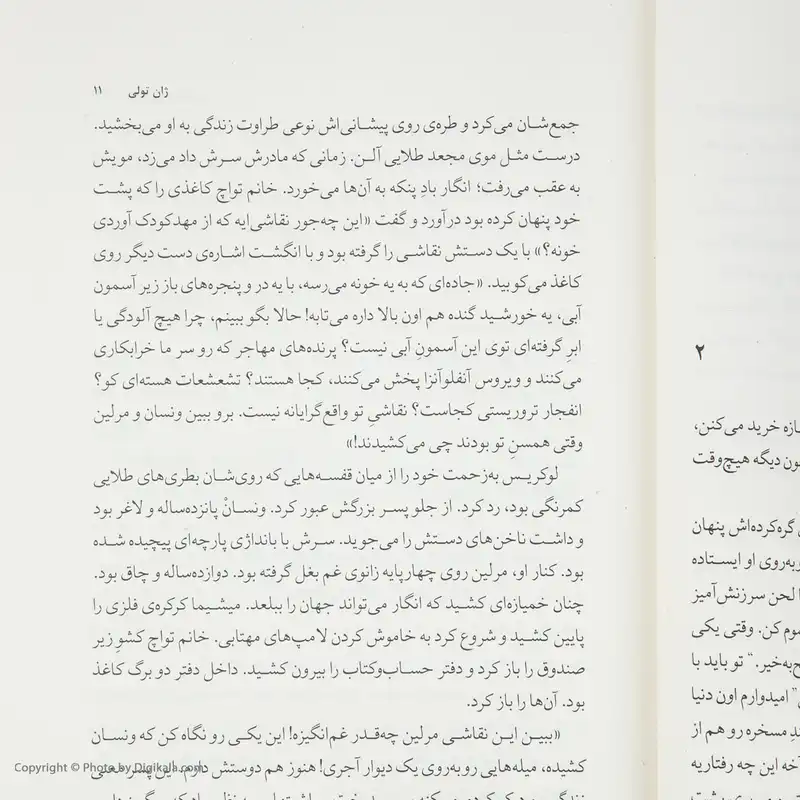 ژان تولی ۱۱
جمع‌شان می‌کرد و طره‌ی روی پیشانی‌اش نوعی طراوت زندگی به او می‌بخشید.
درست مثل موی مجعد طلایی آلن. زمانی که مادرش سرش داد می‌زد، مویش
به عقب می‌رفت؛ انگار بادِ پنکه به آن‌ها می‌خورد. خانم تواچ کاغذی را که پشت
خود پنهان کرده بود درآورد و گفت «این چه‌جور نقاشی‌ایه که از مهدکودک آوردی
خونه؟» با یک دستش نقاشی را گرفته بود و با انگشت اشاره‌ی دست دیگر روی
کاغذ می‌کوبید. «جاده‌ای که به یه خونه می‌رسه، با یه در و پنجره‌های باز زیر آسمون
آبی، یه خورشید گنده هم اون بالا داره می‌تابه! حالا بگو ببینم، چرا هیچ آلودگی یا
ابرِ گرفته‌ای توی این آسمونِ آبی نیست؟ پرنده‌های مهاجر که رو سر ما خرابکاری
می‌کنند و ویروس آنفلوآنزا پخش می‌کنند، کجا هستند؟ تشعشعات هسته‌ای کو؟
انفجار تروریستی کجاست؟ نقاشیِ تو واقع‌گرایانه نیست. برو ببین ونسان و مرلین
وقتی همسنِ تو بودند چی می‌کشیدند!»
لوکریس به‌زحمت خود را از میان قفسه‌هایی که روی‌شان بطری‌های طلایی
کمرنگی بود، رد کرد. از جلو پسر بزرگش عبور کرد. ونسانْ پانزده‌ساله و لاغر بود
و داشت ناخن‌های دستش را می‌جوید. سرش با بانداژی پارچه‌ای پیچیده شده
بود. کنار او، مرلین روی چهارپایه زانوی غم بغل گرفته بود. دوازده‌ساله و چاق بود.
چنان خمیازه‌ای کشید که انگار می‌تواند جهان را ببلعد. میشیما کرکره‌ی فلزی را
پایین کشید و شروع کرد به خاموش کردن لامپ‌های مهتابی. خانم تواچ کشوِ زیر
صندوق را باز کرد و دفتر حساب‌وکتاب را بیرون کشید. داخل دفتر دو برگ کاغذ
بود. آن‌ها را باز کرد.
«ببین این نقاشی مرلین چه‌قدر غم‌انگیزه! این یکی رو نگاه کن که ونسان
کشیده، میله‌هایی روبه‌روی یک دیوار آجری! هنوز هم دوستش دارم.
۲
خرید می‌کنن،
دیگه هیچ‌وقت
گره‌کرده‌اش پنهان
روی او ایستاده
لحن سرزنش‌آمیز
کن. وقتی یکی
تو باید با
امیدوارم اون دنیا
مسخره رو هم از
آخه این چه رفتاریه
Copyright © Photo by Digikala.com